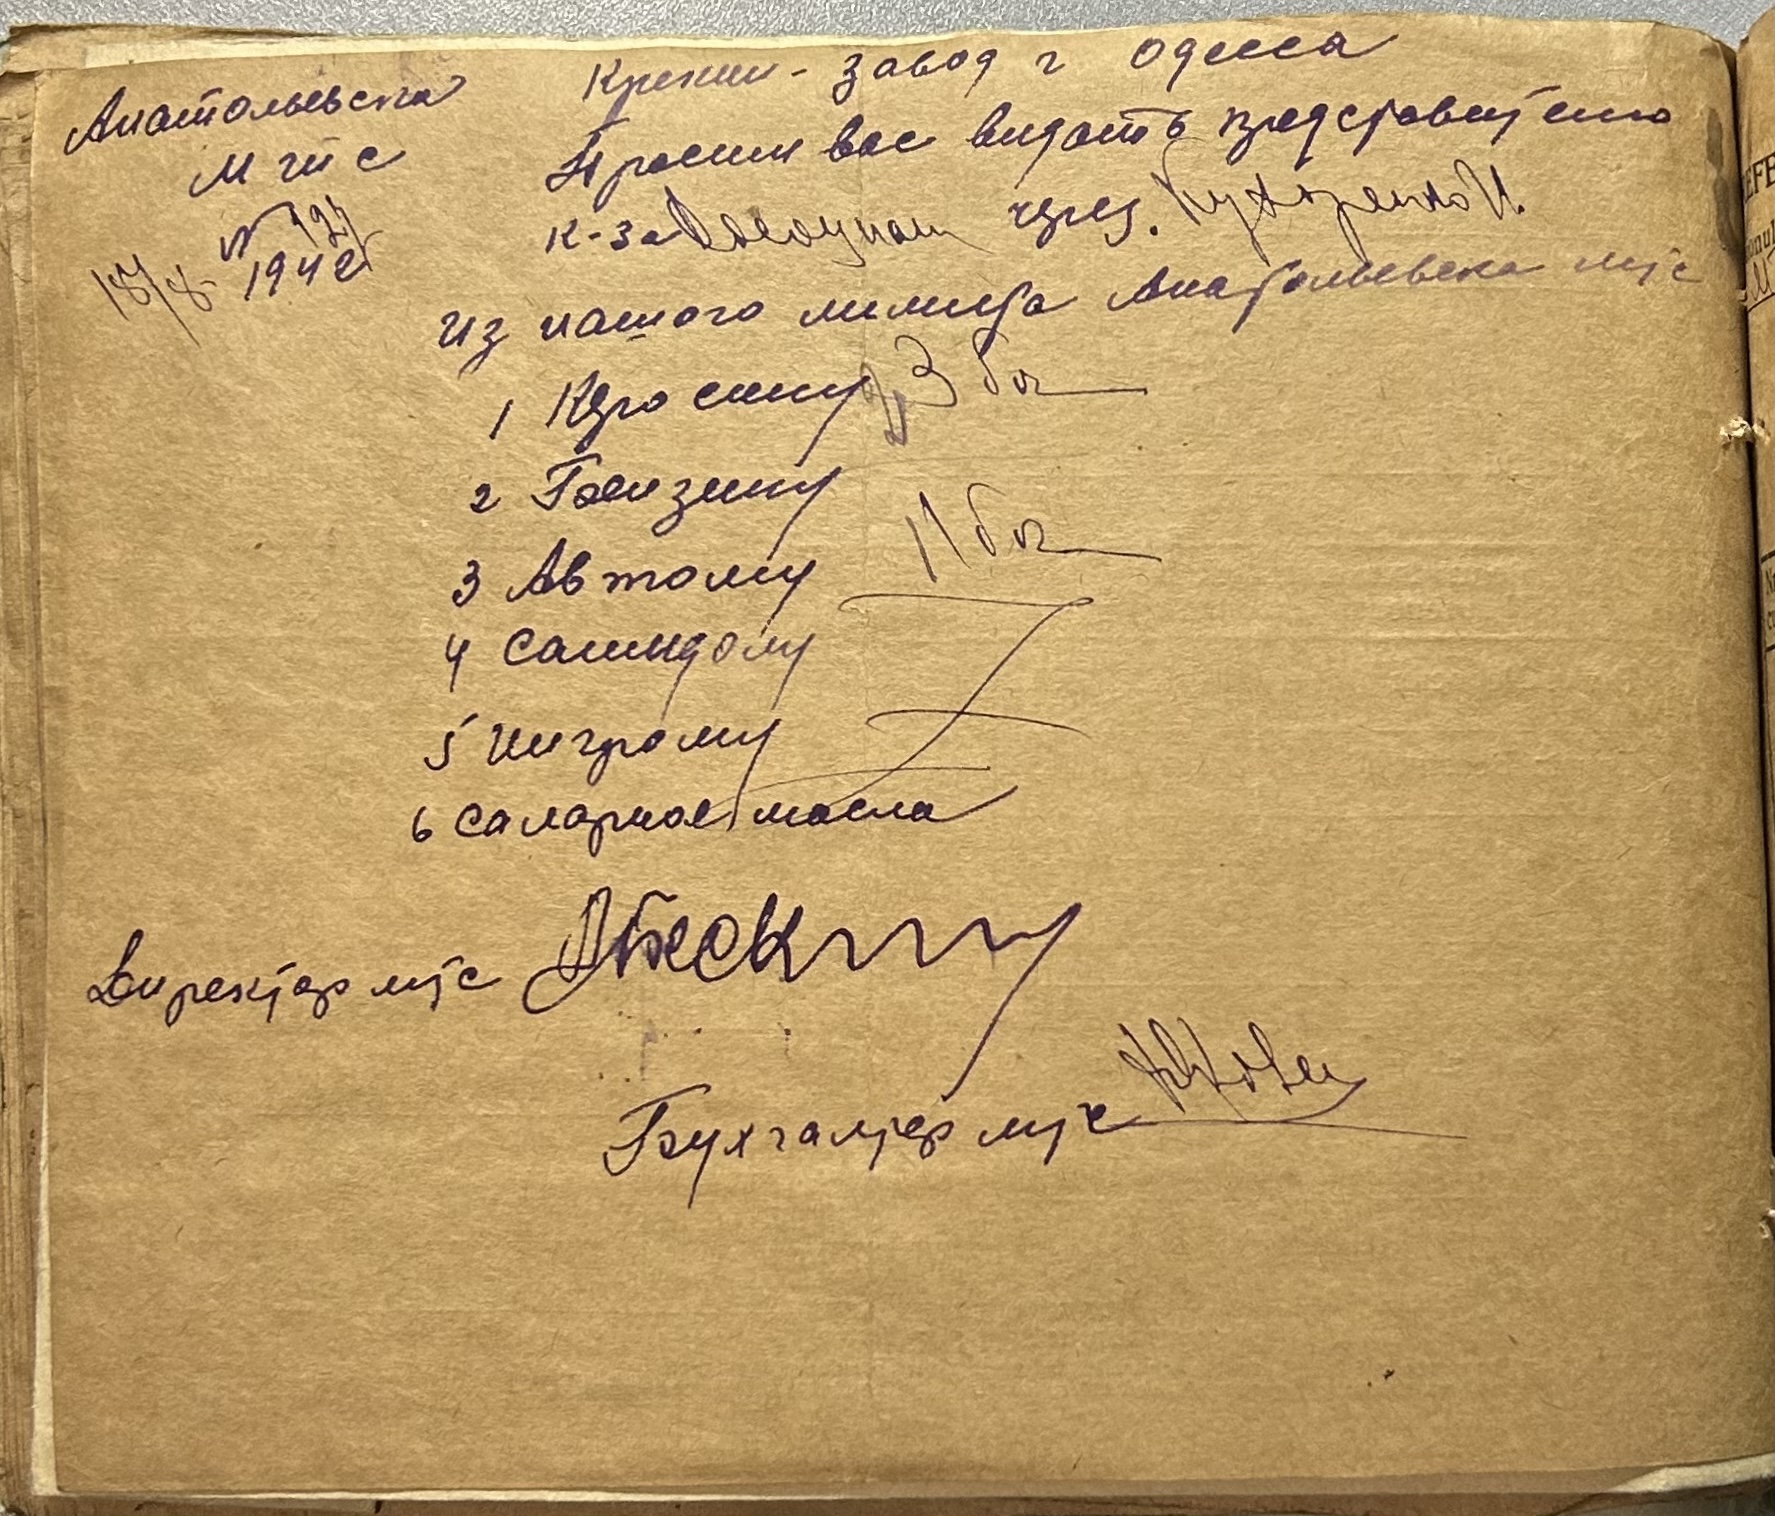 Анатольевска
МТС
№ 124
18/8 - 1942
Крекин - завод г Одесса
Просим вас видать представителю
к-за через. Кухаренко И.
из нашого лимита Анатольевска мтс
1 Керосину 3 боч
2 Бензину
3 Автолу 1 боч
4 Салидолу
5 Нигролу
6 Салярное масла
Директор мтс
Бухгалтер мтс